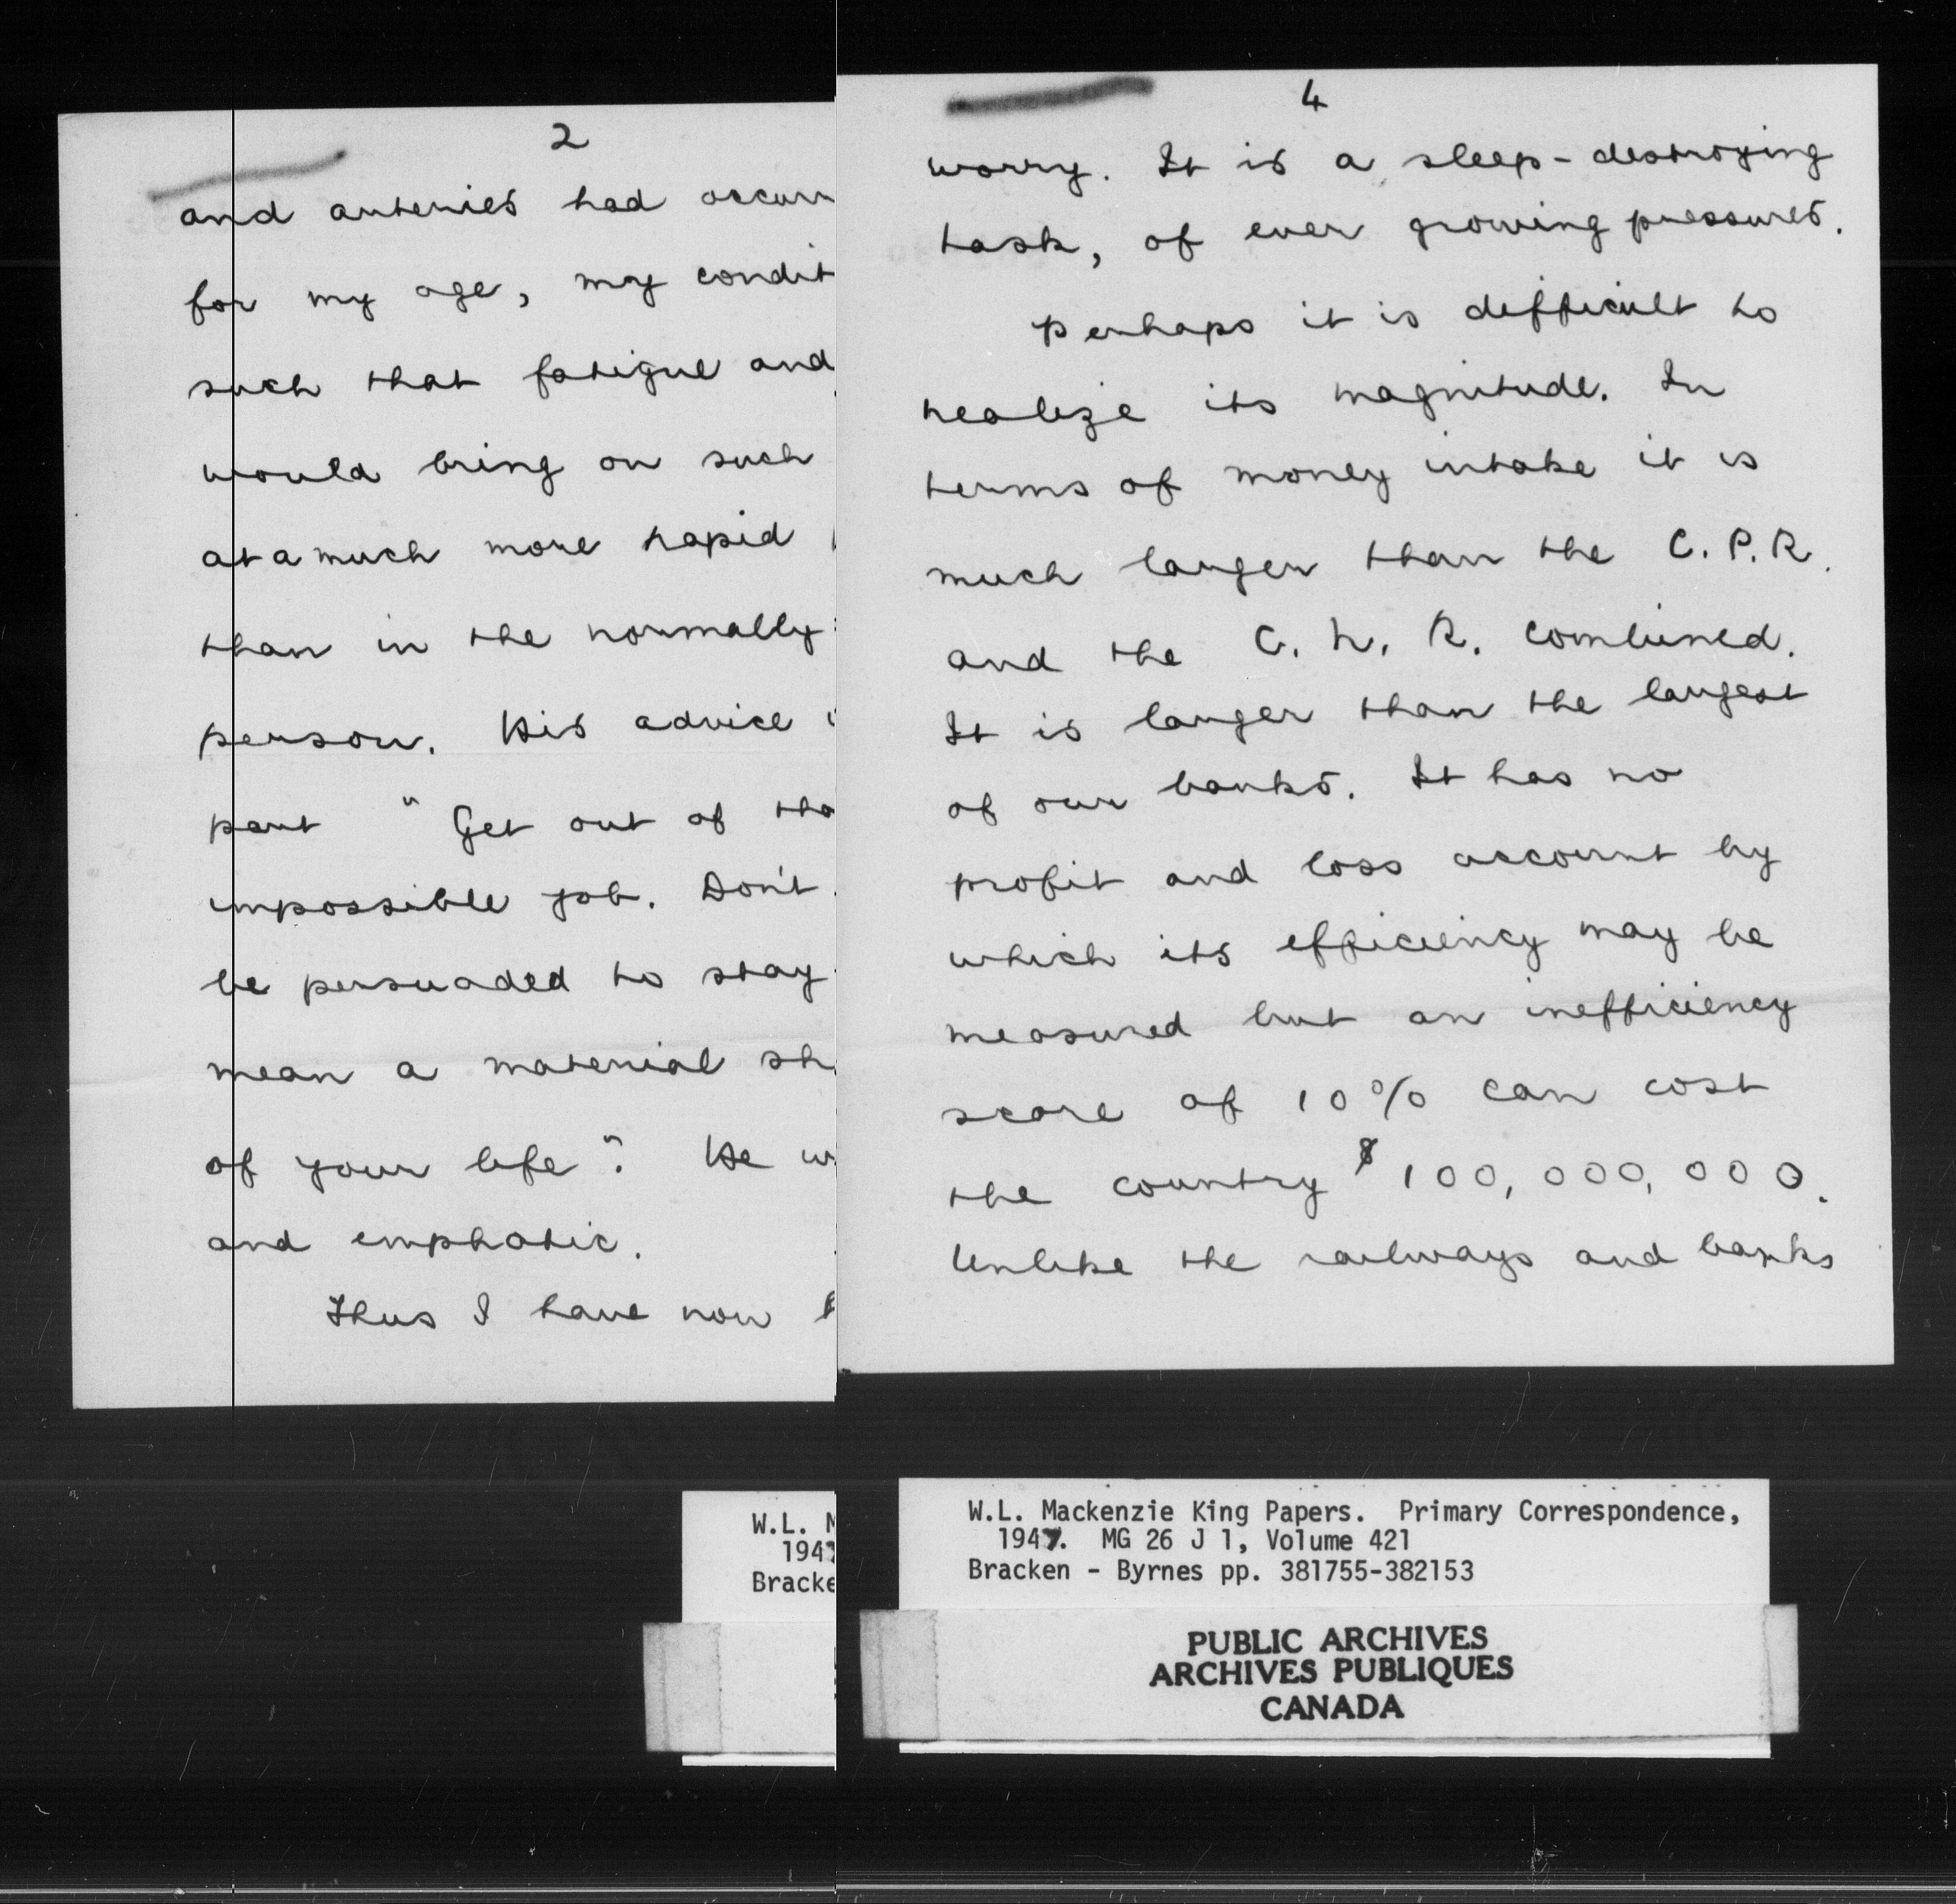 2
and arteries had occurr
for my age, my condit
such that fatigue and
would bring on such
at a much more rapid
than in the normally
person. His advice
part " Get out of tha
impossible job. Don't
be persuaded to stay
mean a material sh
of your life ". He w
and emphatic.
Thus I have now
W.L. M
194
Bracke
4
worry. It is a sleep-destroying
task, of ever growing pressures.
Perhaps it is difficult to
realize its magnitude. In
terms of money intake it is
much larger than the C.P.R.
and the C. N. R. combined.
It is larger than the largest
of our banks. It has no
profit and loss account by
which its efficiency may be
measured but an inefficiency
score of 10% can cost
the country $100,000,000.
Unlike the railways and banks
W.L. Mackenzie King Papers. Primary Correspondence,
1947. MG 26 J 1, Volume 421
Bracken - Byrnes pp. 381755-382153
PUBLIC ARCHIVES
ARCHIVES PUBLIQUES
CANADA